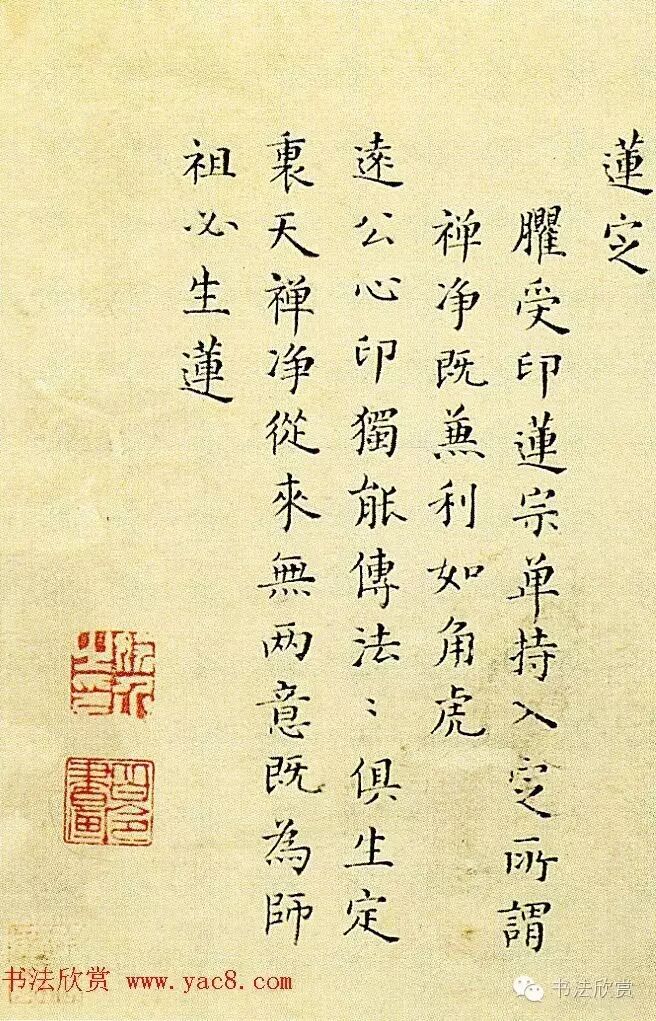 蓮定
臞受印蓮宗单持入定所謂
禅净既兼利如角虎
遠公心印獨能傳法〻俱生定
裏天禅净從來無两意既為師
祖必生蓮
书法欣赏 www.yac8.com
书法欣赏